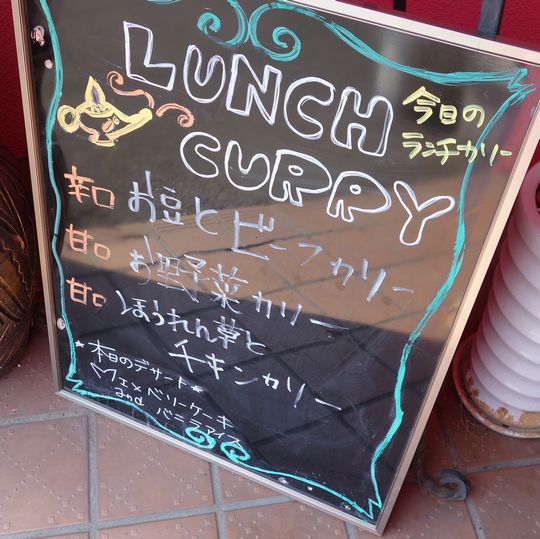 LUNCH
CURRY
今日の
ランチカリー
辛口 お豆とビーフカリー
甘口 お野菜カリー
甘口 ほうれん草と
チキンカリー
★本日のデザート★
ベリーケーキ
and バニラアイス